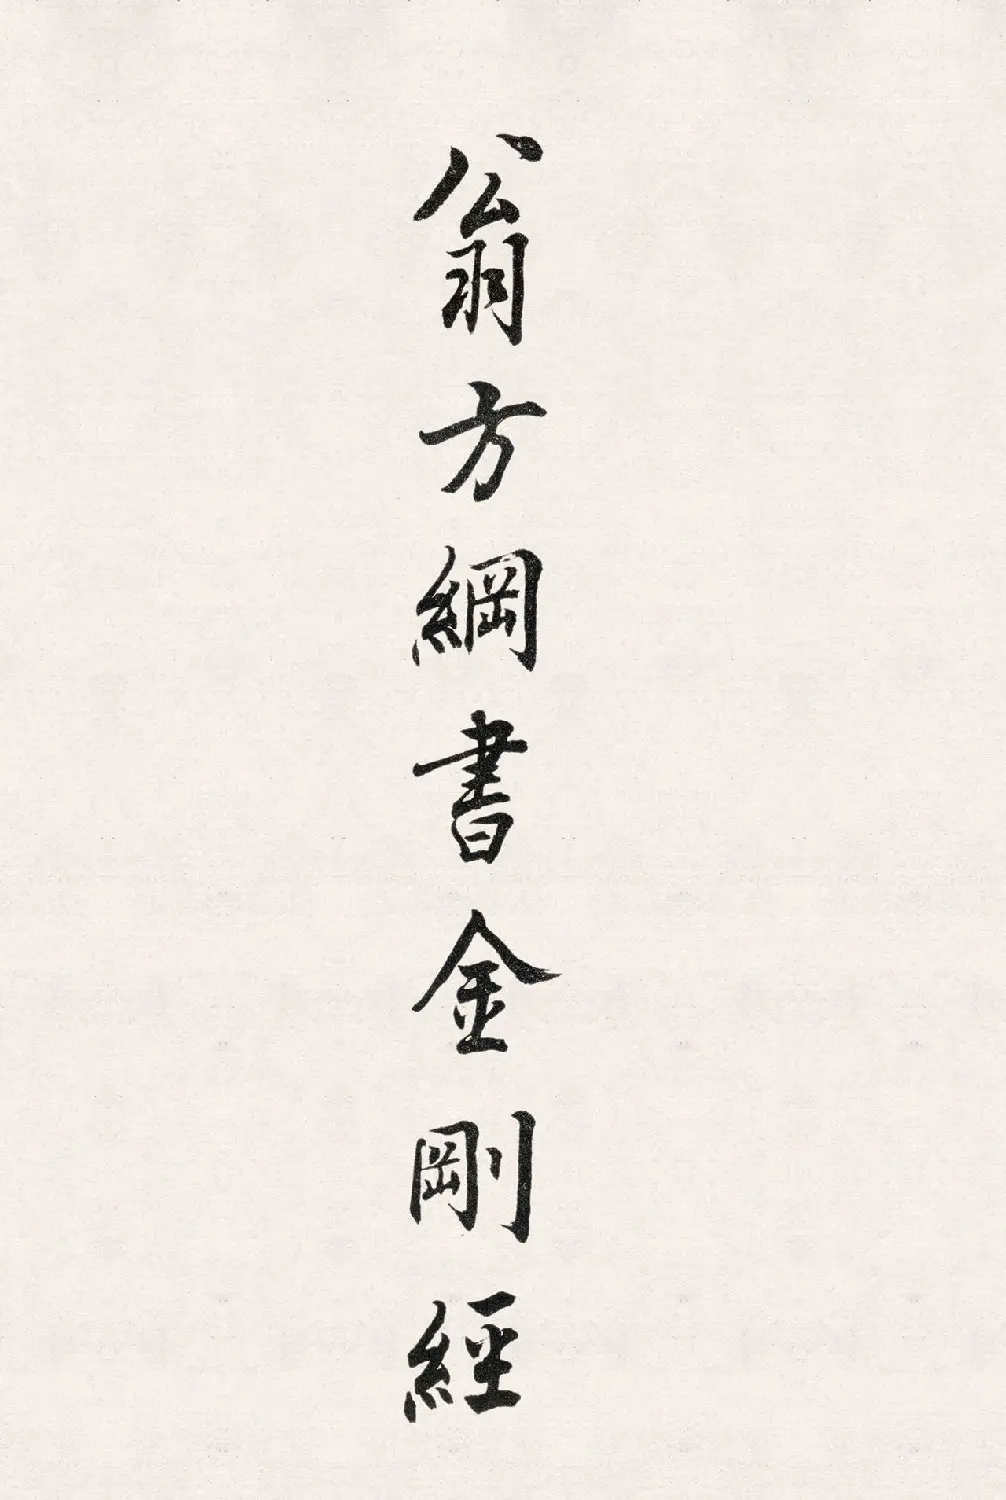 翁方綱書金剛經